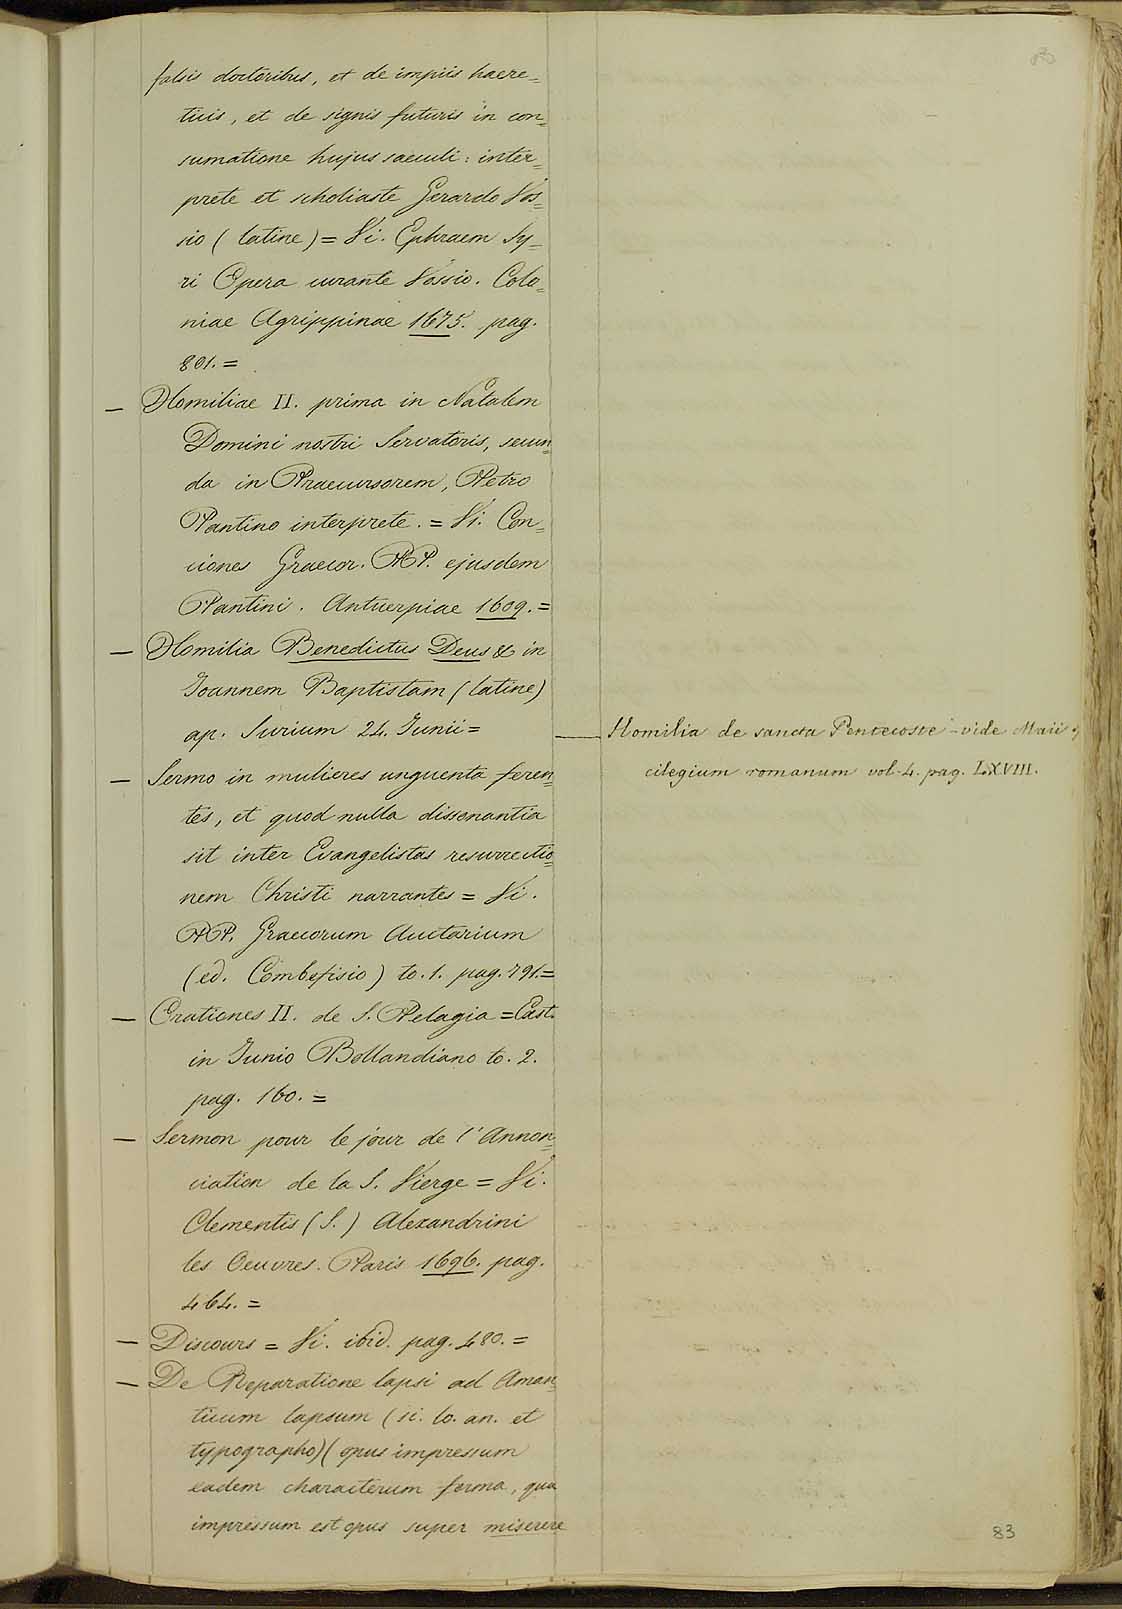 falsis doctoribus, et de impiis haere=
ticis, et de signis futuris in con=
sumatione hujus saeculi: inter=
prete et scholiaste Gerardo Vos=
sio (latine) = Vi. Ephraem Sy=
ri Opera curante Vossio. Colo=
niae Agrippinae 1675. pag.
801. =
— Homiliae II. prima in Natalem
Domini nostri Servatoris, secun=
da in Praecursorem, Petro
Pantino interprete. = Vi. Con=
ciones Graecor. PP. ejusdem
Pantini. Antuerpiae 1609. =
— Homilia Benedictus Deus & in
Joannem Baptistam (latine)
ap. Surium 24. Junii =
— Sermo in mulieres unguenta feren=
tes, et quod nulla dissonantia
sit inter Evangelistas resurrectio=
nem Christi narrantes = Vi.
PP. Graecorum Auctarium
(ed. Combefisio) to. 1. pag. 791. =
— Orationes II. de S. Pelagia = Exst.
in Junio Bollandiano to. 2.
pag. 160. =
— Sermon pour le jour de l'Annon=
ciation de la S. Vierge = Vi.
Clementis (S.) Alexandrini
les Oeuvres. Paris 1696. pag.
464. =
— Discours = Vi. ibid. pag. 480. =
— De Reparatione lapsi ad Aman=
ticum lapsum (si. lo. an. et
typographo) (opus impressum
eadem characterum forma, qua
impressum est opus super miserere
— Homilia de sancta Pentecoste - vide Maii
cilegium romanum vol. 4. pag. LXVIII.
83